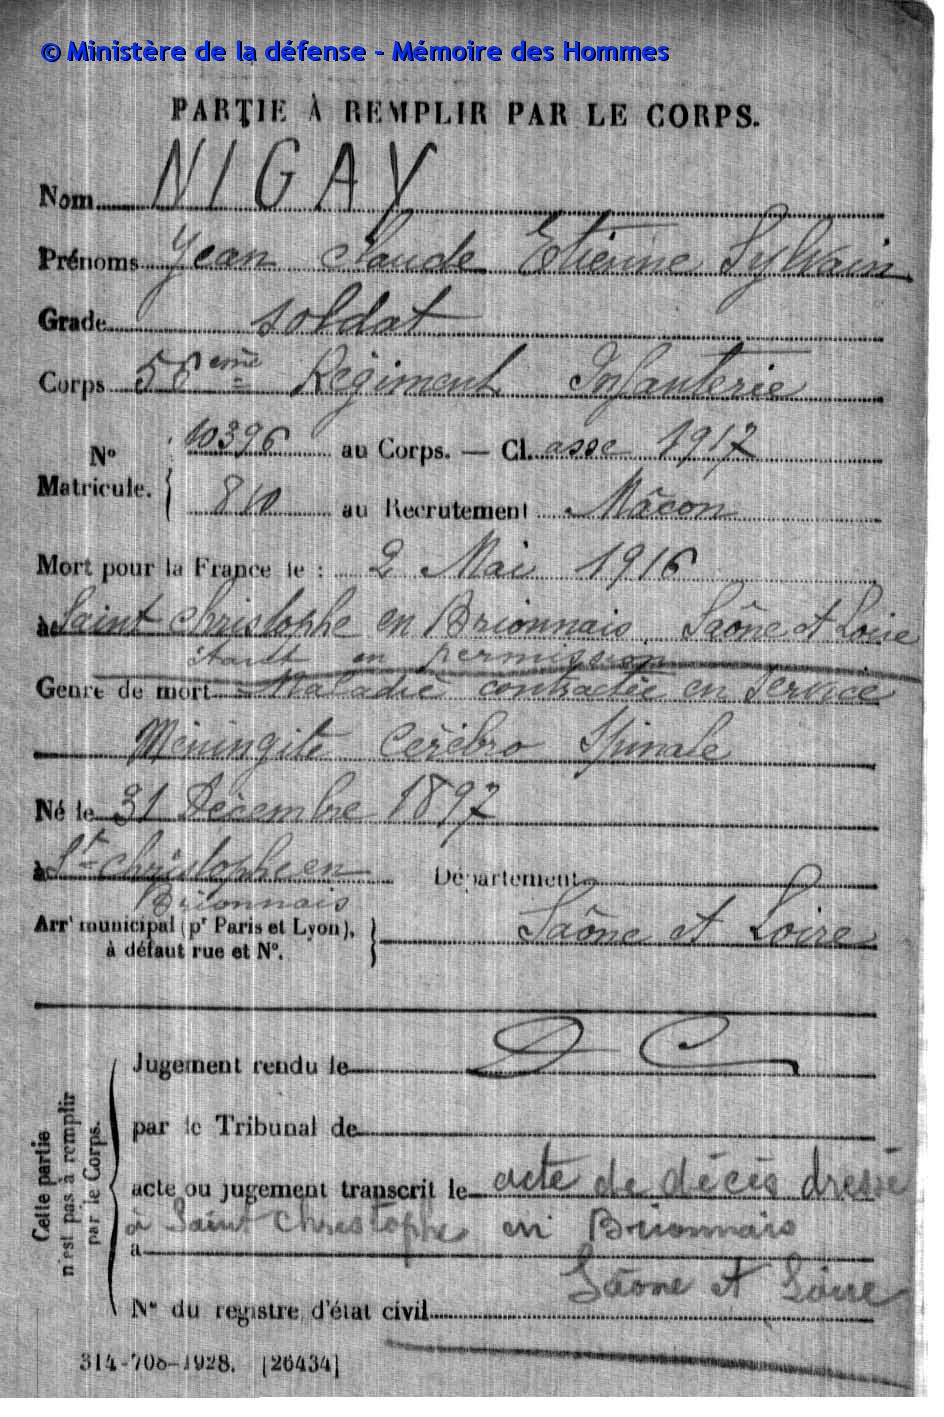 © Ministère de la défense - Mémoire des Hommes
PARTIE À REMPLIR PAR LE CORPS.
Nom NIGAY
Prénoms Jean Claude Etienne Sylvain
Grade soldat
Corps 56ème Régiment Infanterie
Nº Matricule. { 10396 au Corps. — Cl. asse 1917
810 au Recrutement Mâcon
Mort pour la France le : 2 Mai 1916
à Saint Christophe en Brionnais Saône et Loire
étant en permission
Genre de mort Maladie contractée en Service
Méningite Cérébro Spinale
Né le 31 Décembre 1897
à St Christophe en Département
Brionnais
Arrt municipal (pr Paris et Lyon), à défaut rue et Nº. } Saône et Loire
D C
Jugement rendu le
par le Tribunal de
acte ou jugement transcrit le acte de décès dressé
à Saint Christophe en Brionnais
à
Saône et Loire
Nº du registre d'état civil
Cette partie n'est pas à remplir par le Corps.
314-708-1928. [26434]